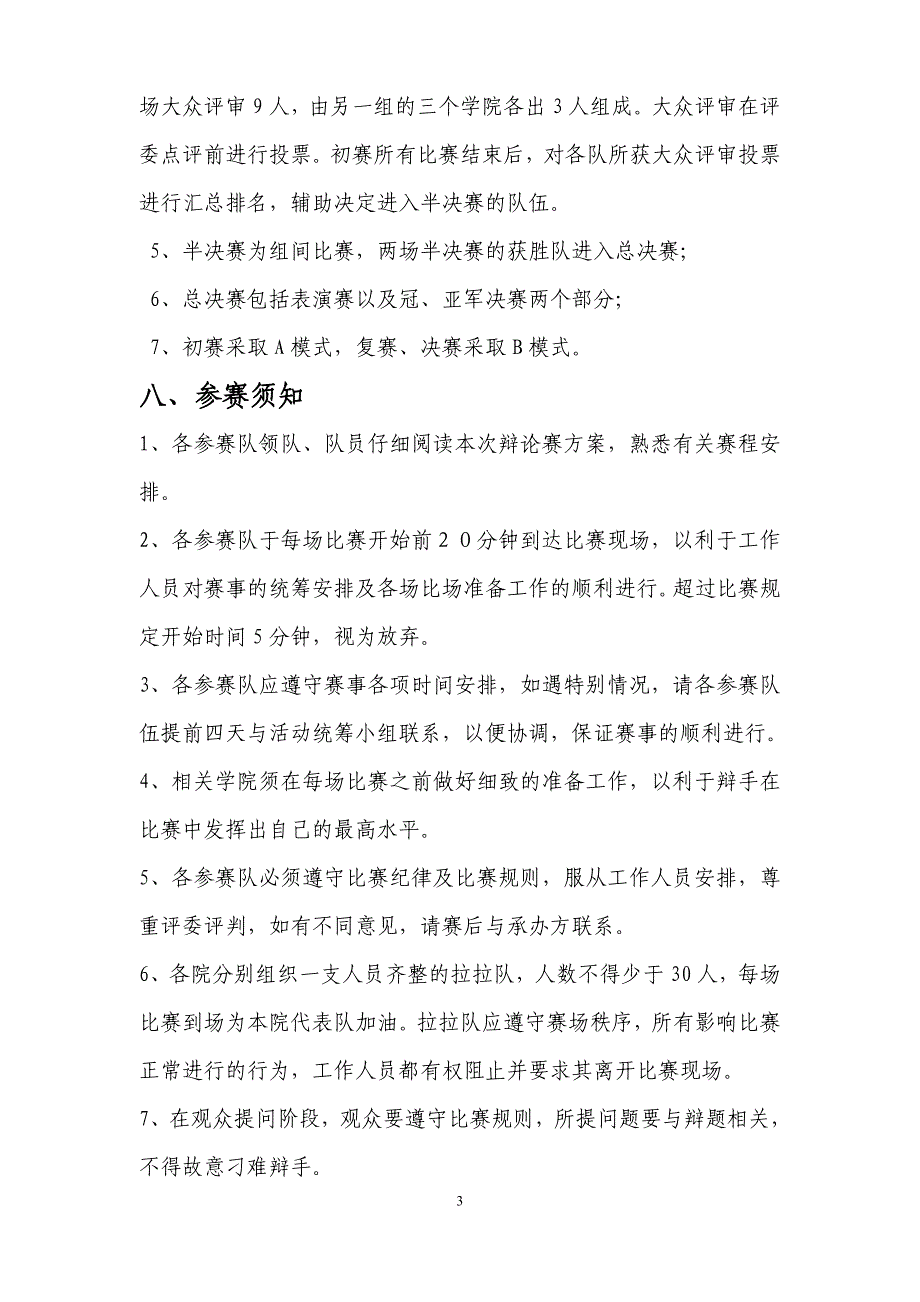 场大众评审 9 人，由另一组的三个学院各出 3 人组成。大众评审在评
委点评前进行投票。初赛所有比赛结束后，对各队所获大众评审投票
进行汇总排名，辅助决定进入半决赛的队伍。
5、半决赛为组间比赛，两场半决赛的获胜队进入总决赛；
6、总决赛包括表演赛以及冠、亚军决赛两个部分；
7、初赛采取 A 模式，复赛、决赛采取 B 模式。
八、参赛须知
1、各参赛队领队、队员仔细阅读本次辩论赛方案，熟悉有关赛程安
排。
2、各参赛队于每场比赛开始前２０分钟到达比赛现场，以利于工作
人员对赛事的统筹安排及各场比场准备工作的顺利进行。超过比赛规
定开始时间 5 分钟，视为放弃。
3、各参赛队应遵守赛事各项时间安排，如遇特别情况，请各参赛队
伍提前四天与活动统筹小组联系，以便协调，保证赛事的顺利进行。
4、相关学院须在每场比赛之前做好细致的准备工作，以利于辩手在
比赛中发挥出自己的最高水平。
5、各参赛队必须遵守比赛纪律及比赛规则，服从工作人员安排，尊
重评委评判，如有不同意见，请赛后与承办方联系。
6、各院分别组织一支人员齐整的拉拉队，人数不得少于 30 人，每场
比赛到场为本院代表队加油。拉拉队应遵守赛场秩序，所有影响比赛
正常进行的行为，工作人员都有权阻止并要求其离开比赛现场。
7、在观众提问阶段，观众要遵守比赛规则，所提问题要与辩题相关，
不得故意刁难辩手。
3